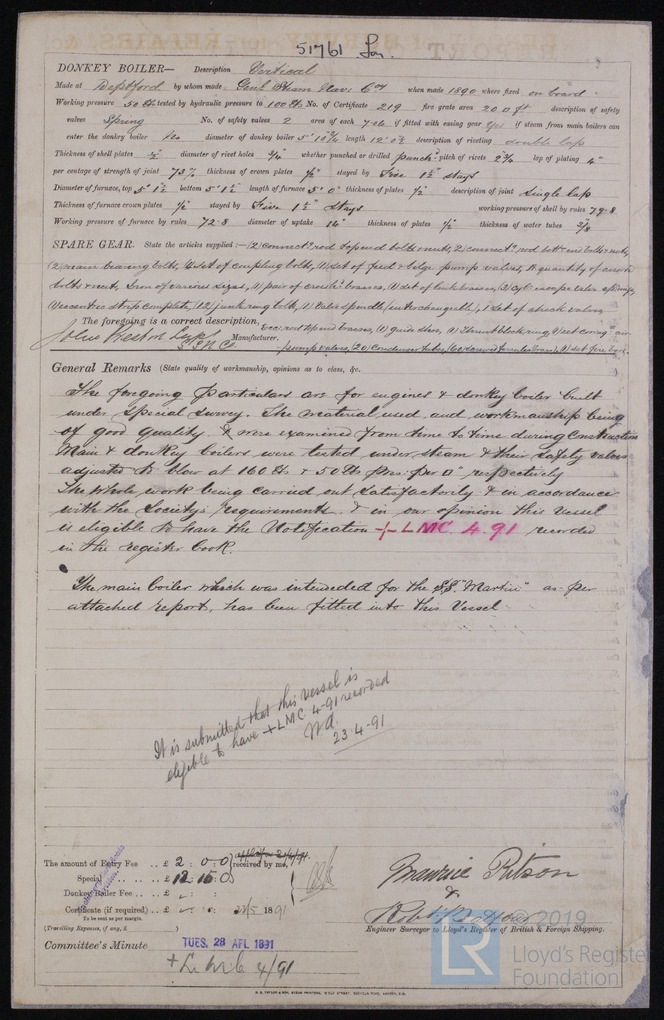 51761 Lon.
DONKEY BOILER— Description Vertical
Made at Deptford by whom made Genl Steam Nav. Coy when made 1890 where fixed on board
Working pressure 50 lb tested by hydraulic pressure to 100 lbs No. of Certificate 219 fire grate area 20.0 ft description of safety
valves Spring No. of safety valves 2 area of each 7. if fitted with easing gear yes if steam from main boilers can
enter the donkey boiler No diameter of donkey boiler length description of riveting double lap
Thickness of shell plates diameter of rivet holes whether punched or drilled punchd pitch of rivets 2 3/4 lap of plating 4"
per centage of strength of joint 73% thickness of crown plates 1/2" stayed by Five 1 1/2" stays
Diameter of furnace, top bottom length of furnace 5' 0" thickness of plates 1/2 description of joint Single lap
Thickness of furnace crown plates 1/2" stayed by Five 1 1/2" Stays working pressure of shell by rules 79.8
Working pressure of furnace by rules 72.8 diameter of uptake thickness of plates 1/2 thickness of water tubes 3/8
SPARE GEAR. State the articles supplied:— (2) connectg rod top end bolts & nuts, 2) connectg rod bottm end bolts & nuts,
(2) main bearing bolts, (1) set of coupling bolts, (1) set of feed & bilge pump valves, A quantity of assorted
bolts & nuts, Iron of various sizes, (1) pair of brasses, (1) set of link brasses, (3) cyl. escape valve springs,
(1) eccentric strap complete, (12) junk ring bolts, (1) Valve spindle (interchangeable), 1 set of check valves
The foregoing is a correct description, rod top end brasses, (1) guide shoe, (1) Thrust block ring, (1) set air
John Preston Manufacturer.
G.S.N.Co. pump valves, (20) Condenser tubes, (60) ferrules, (1) set fire bars.
General Remarks (State quality of workmanship, opinions as to class, &c.
The foregoing particulars are for engines & donkey boiler built
under special survey. The material used, and workmanship being
of good quality & were examined from time to time during construction
Main & donkey boilers were tested under steam & their safety valves
adjusted to blow at 160 lbs & 50 lbs prs. per □" respectively
The whole work being carried out satisfactorily & in accordance
with the Society's requirements. & in our opinion this vessel
is eligible to have the Notification +LMC. 4.91 recorded
in the register book.
The main boiler which was intended for the S.S. "Martin" as per
attached report, has been fitted into this vessel
It is submitted that this vessel is
eligible to have +LMC 4.91 recorded
23.4.91
The amount of Entry Fee .. £ 2 : 0 : 0 received by me,
Special .. .. £ 12 : 15 : 0
Donkey Boiler Fee .. £
Certificate (if required) .. £ 1891
To be sent as per margin.
(Travelling Expenses, if any, £ )
Maurice Ritson
&
Robt Balfour
Engineer Surveyor to Lloyd's Register of British & Foreign Shipping.
Committee's Minute TUES. 28 APL 1891
+ L M C 4/91
© 2019
LR Lloyd's Register
Foundation